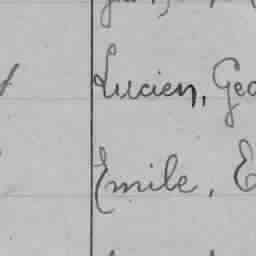 Lucien, Geo
Emile, E